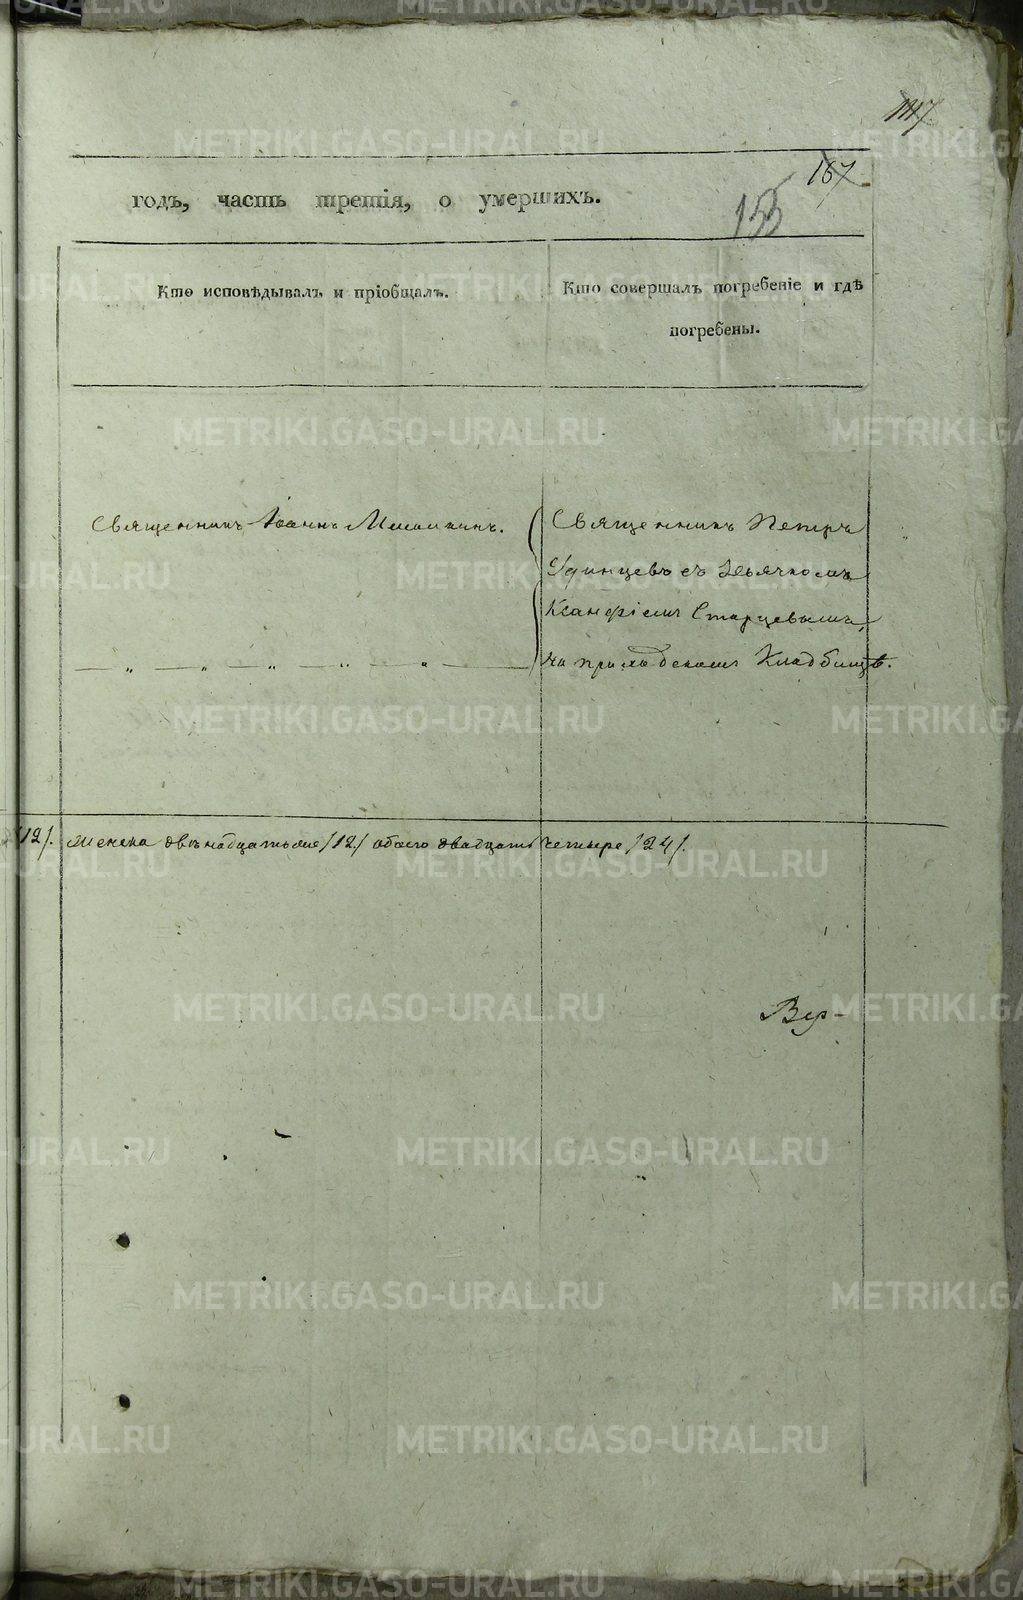 167
155
годъ, часть третія, о умершихъ.
Кто исповѣдывалъ и пріобщалъ.
Кто совершалъ погребеніе и гдѣ
погребены.
Священникъ Іоаннъ
Священникъ Петръ
Удинцевъ съ Дьячкомъ
Ксанфіемъ Старцевымъ,
на приходскомъ Кладбищѣ.
12/. женска двѣнадцать /12/ обоего двадцать четыре /24/.
METRIKI.GASO-URAL.RU